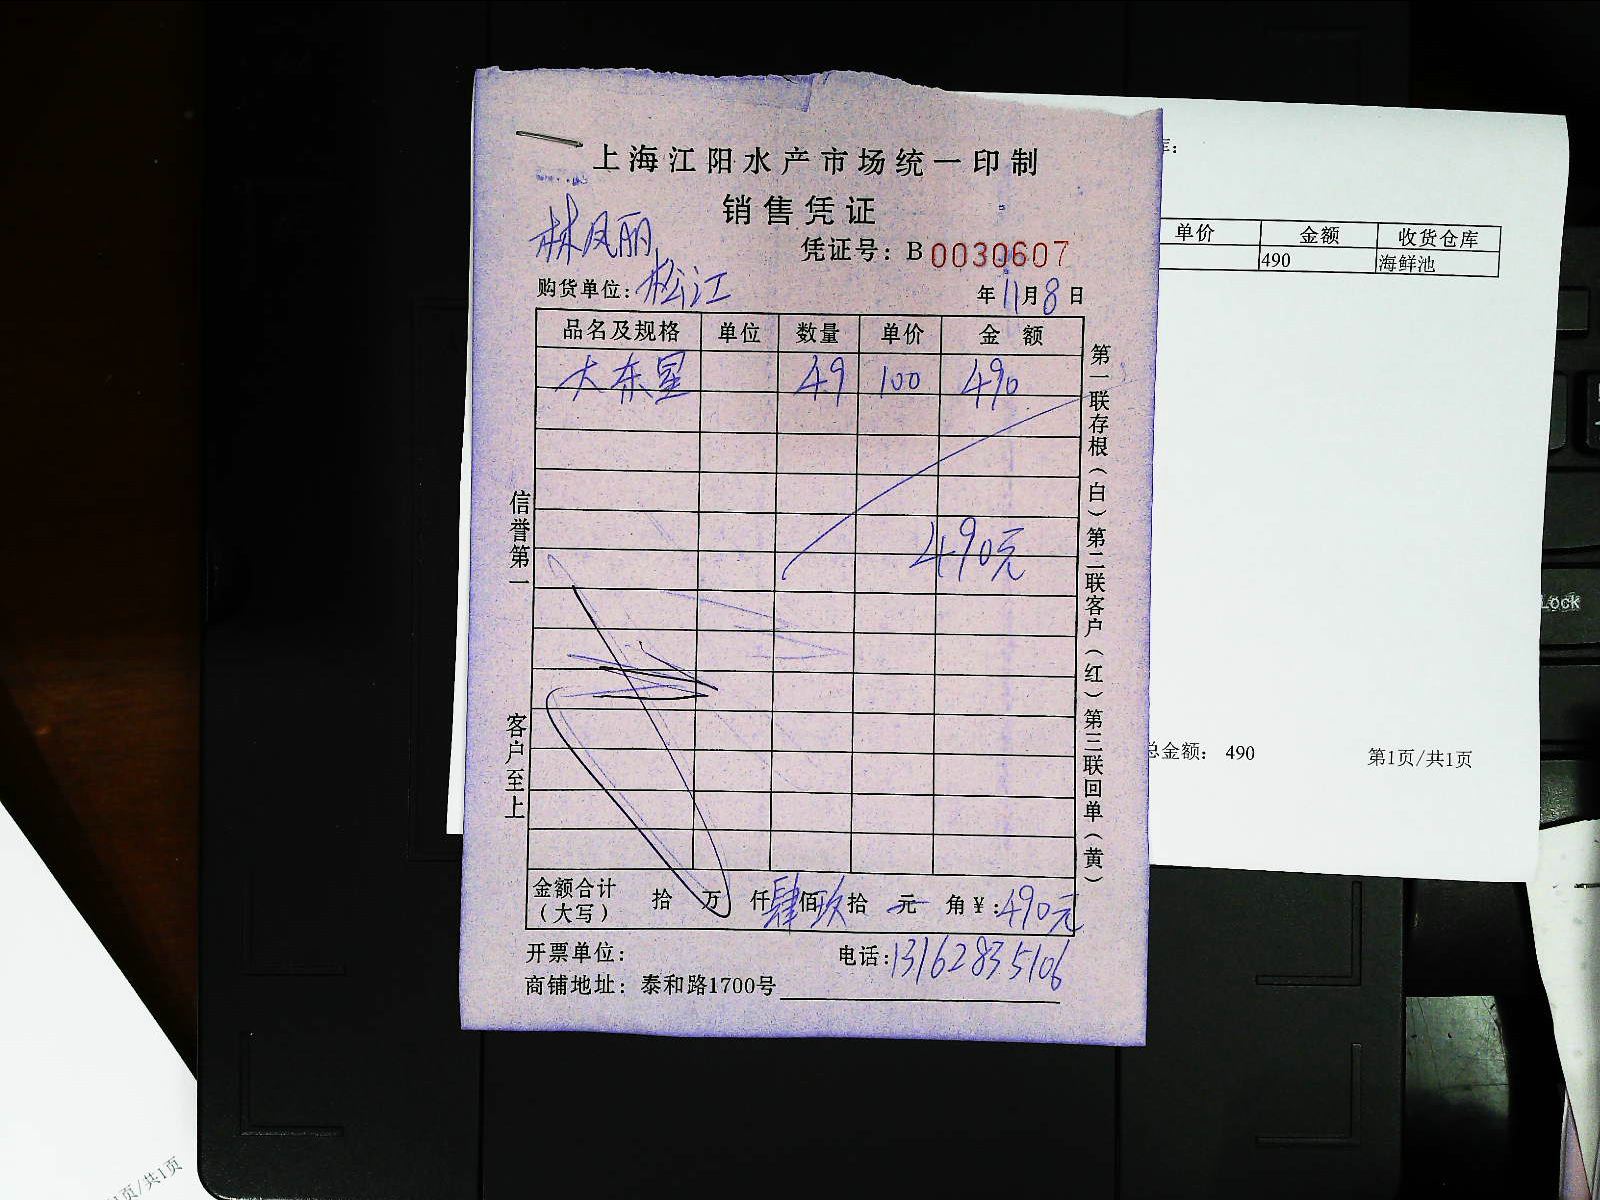 上海江阳水产市场统一印制
销售凭证
林凤丽
凭证号：B 0030607
购货单位：松江 年11月8日
品名及规格 单位 数量 单价 金额
大东星 49 100 490
490元
信誉第一
客户至上
第一联存根（白）第二联客户（红）第三联回单（黄）
金额合计（大写） 拾 万 仟肆佰玖拾 元 角¥：490元
开票单位： 电话：13162835106
商铺地址：泰和路1700号
单价 金额 收货仓库
490 海鲜池
总金额： 490 第1页/共1页
Lock
页/共1页